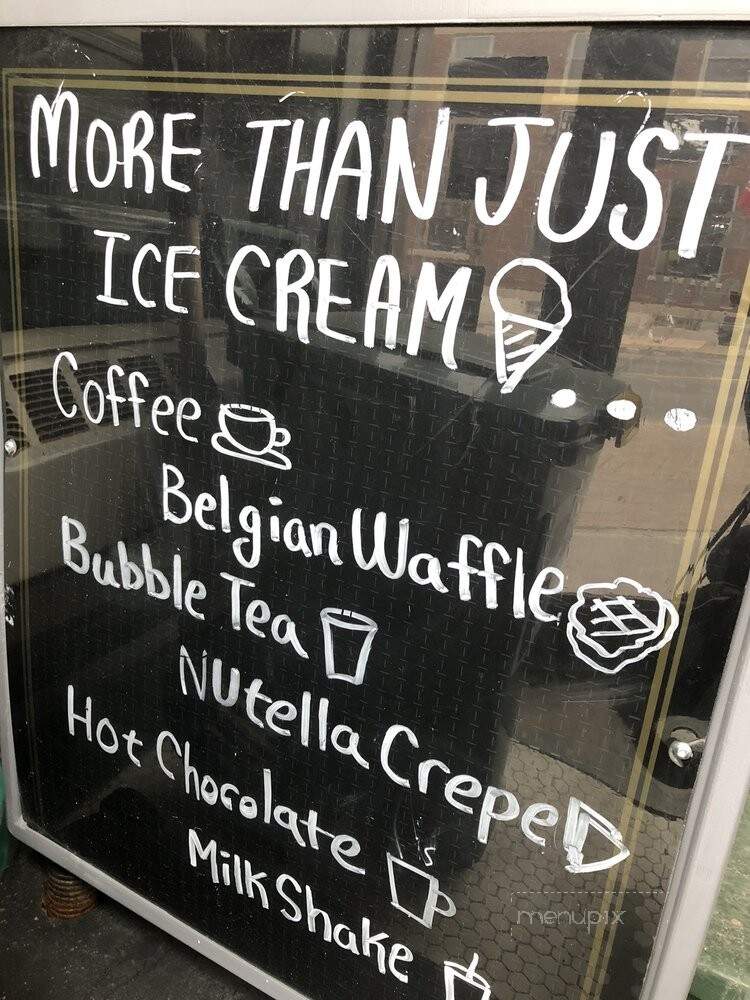 MORE THAN JUST
ICE CREAM...
Coffee
Belgian Waffle
Bubble Tea
NUtella Crepe
Hot Chocolate
Milk Shake
menupix